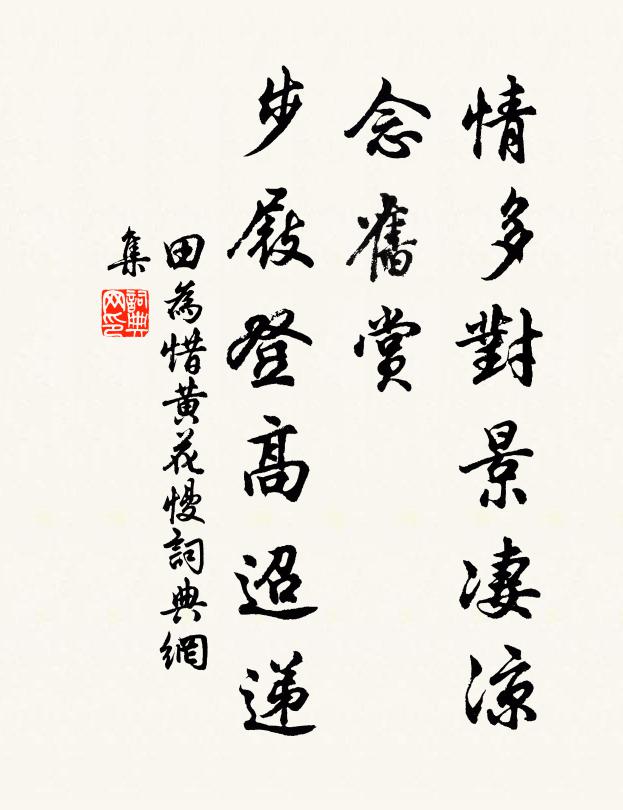 情多對景凄涼
念舊賞
步屐登高迢递
田為惜黄花慢詞典網
集
詞典
网印